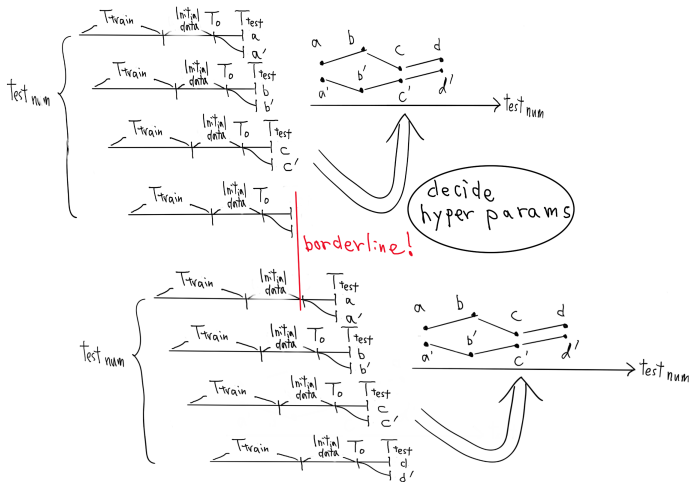 T train Initial data T0 Ttest
a
a'
T train Initial data T0 Ttest
b
b'
T train Initial data T0 Ttest
c
c'
T train Initial data T0
test num
a b c d
a' b' c' d'
test num
decide
hyper params
borderline!
T train Initial data Ttest
a
a'
T train Initial data T0 Ttest
b
b'
T train Initial data T0 Ttest
c
c'
T train Initial data T0 Ttest
d
d'
test num
a b c d
a' b' c' d'
test num